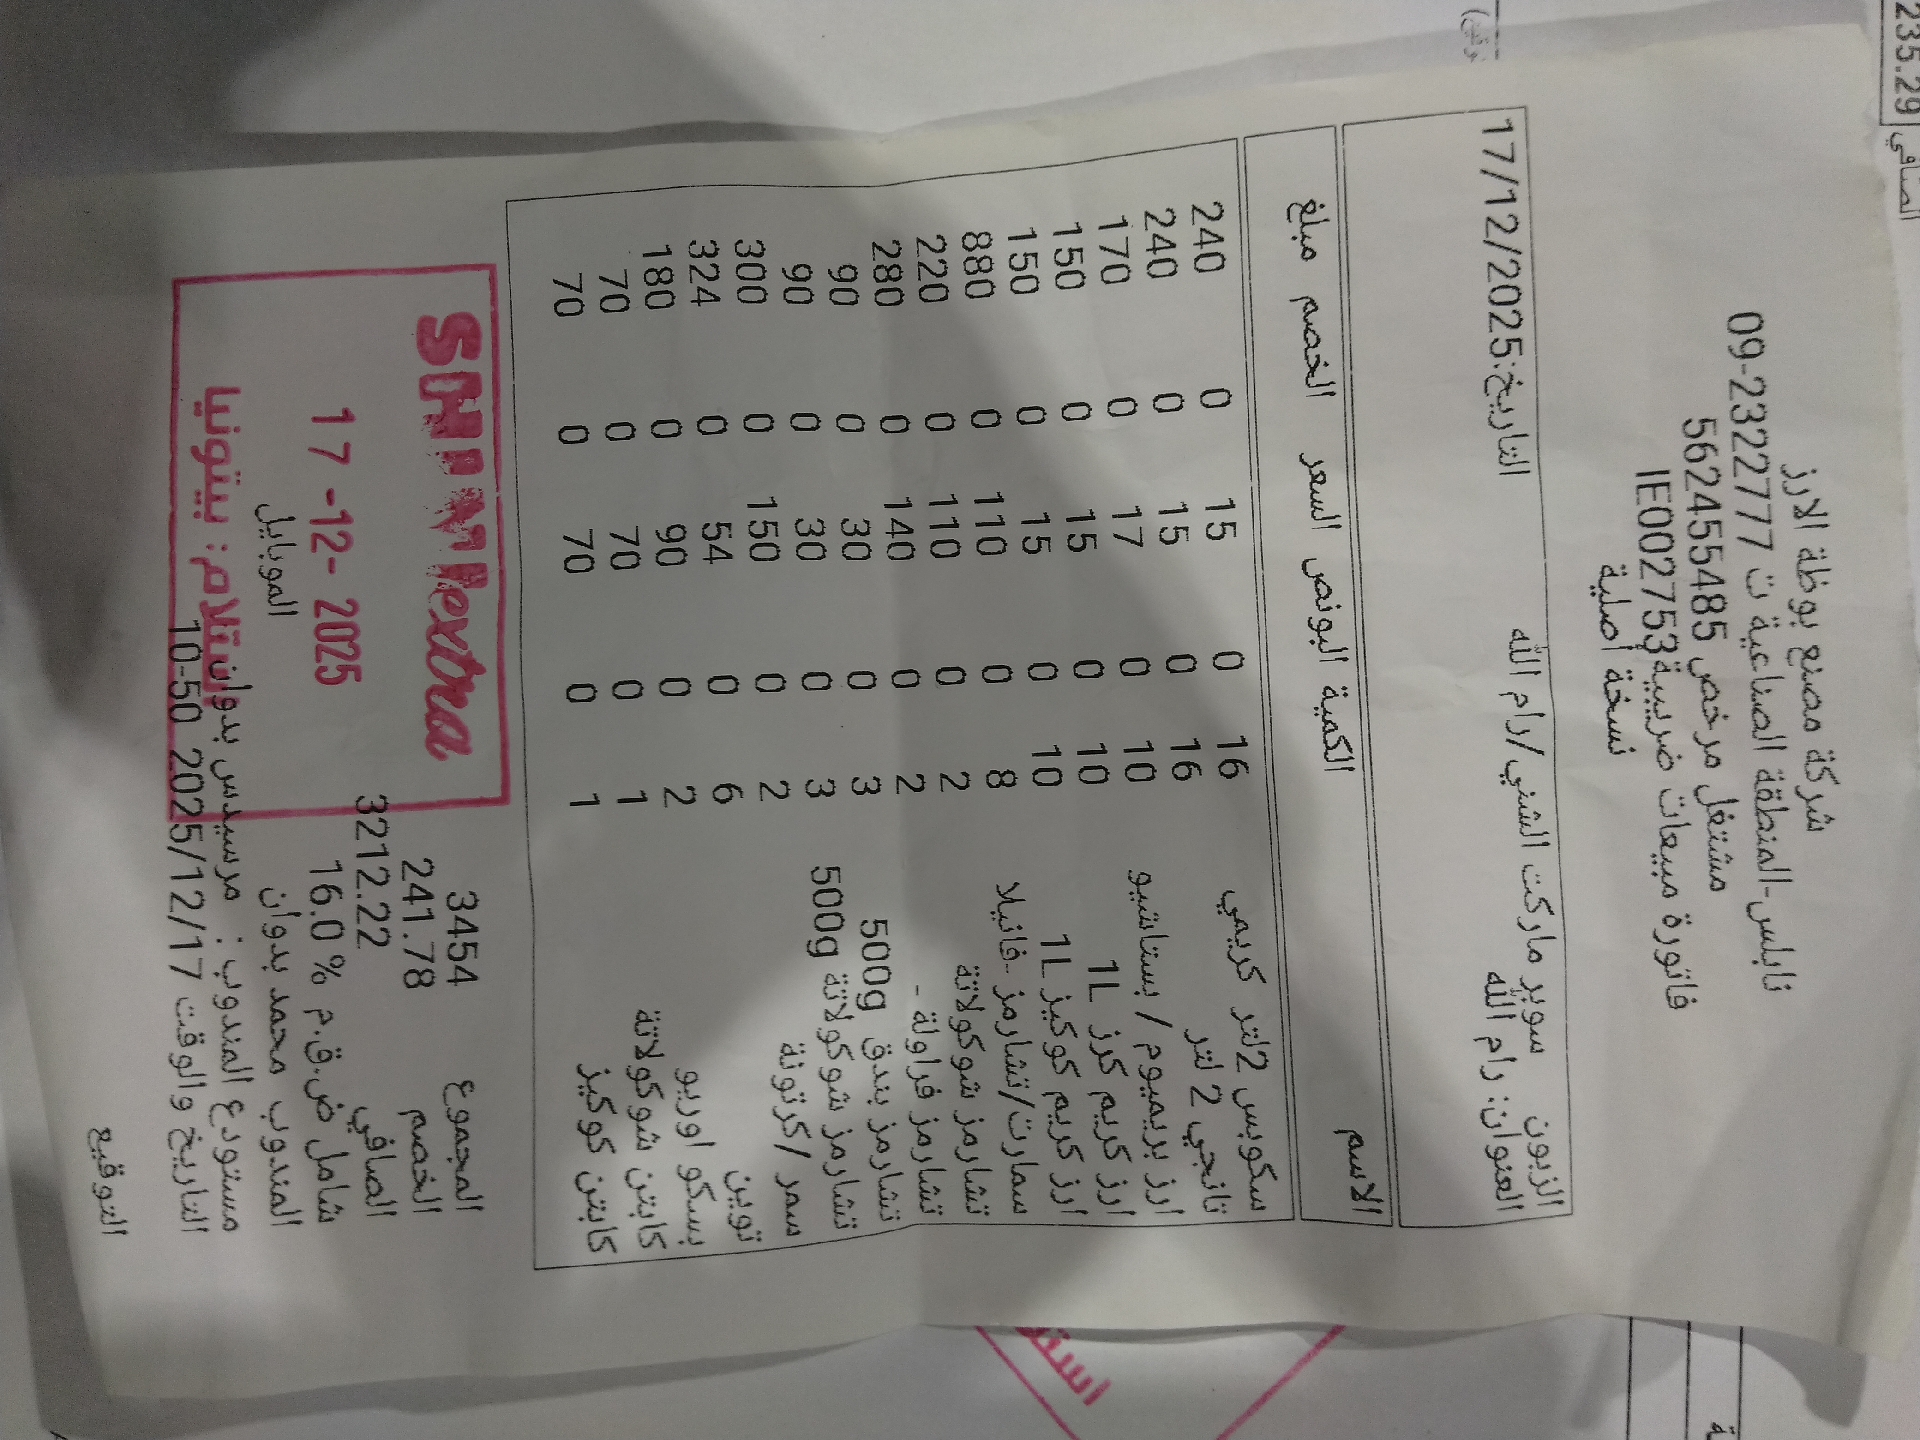 235.29
الصافي
شركة مصنع بوظة الارز
نابلس-المنطقة الصناعية ت 09-2322777
مشتغل مرخص 562455485
فاتورة مبيعات ضريبية IE002753
نسخة أصلية
الزبون سوبر ماركت الشني/رام الله التاريخ:17/12/2025
العنوان: رام الله
الاسم الكمية البونص السعر الخصم مبلغ
سكوبس 2لتر كريمي 16 0 15 0 240
تانجي 2 لتر 16 0 15 0 240
ارز بريميوم / بستاشيو 10 0 17 0 170
ارز كريم كرز 1L 10 0 15 0 150
ارز كريم كوكيز 1L 10 0 15 0 150
سمارت/تشارمز -فانيلا 8 0 110 0 880
تشارمز شوكولاتة 2 0 110 0 220
تشارمز فراولة - 2 0 140 0 280
تشارمز بندق 500g 3 0 30 0 90
تشارمز شوكولاتة 500g 3 0 30 0 90
سمر /كرتونة 2 0 150 0 300
توين 6 0 54 0 324
بسكو اوريو 2 0 90 0 180
كابتن شوكولاتة 1 0 70 0 70
كابتن كوكيز 1 0 70 0 70
المجموع 3454
الخصم 241.78
الصافي 3212.22
شامل ض.ق.م % 16.0
المندوب محمد بدوان الموبايل
مستودع المندوب : مرسيدس بدوان
التاريخ والوقت 2025/12/17 10-50
التوقيع
extra
17 -12- 2025
استلام: بيتونيا